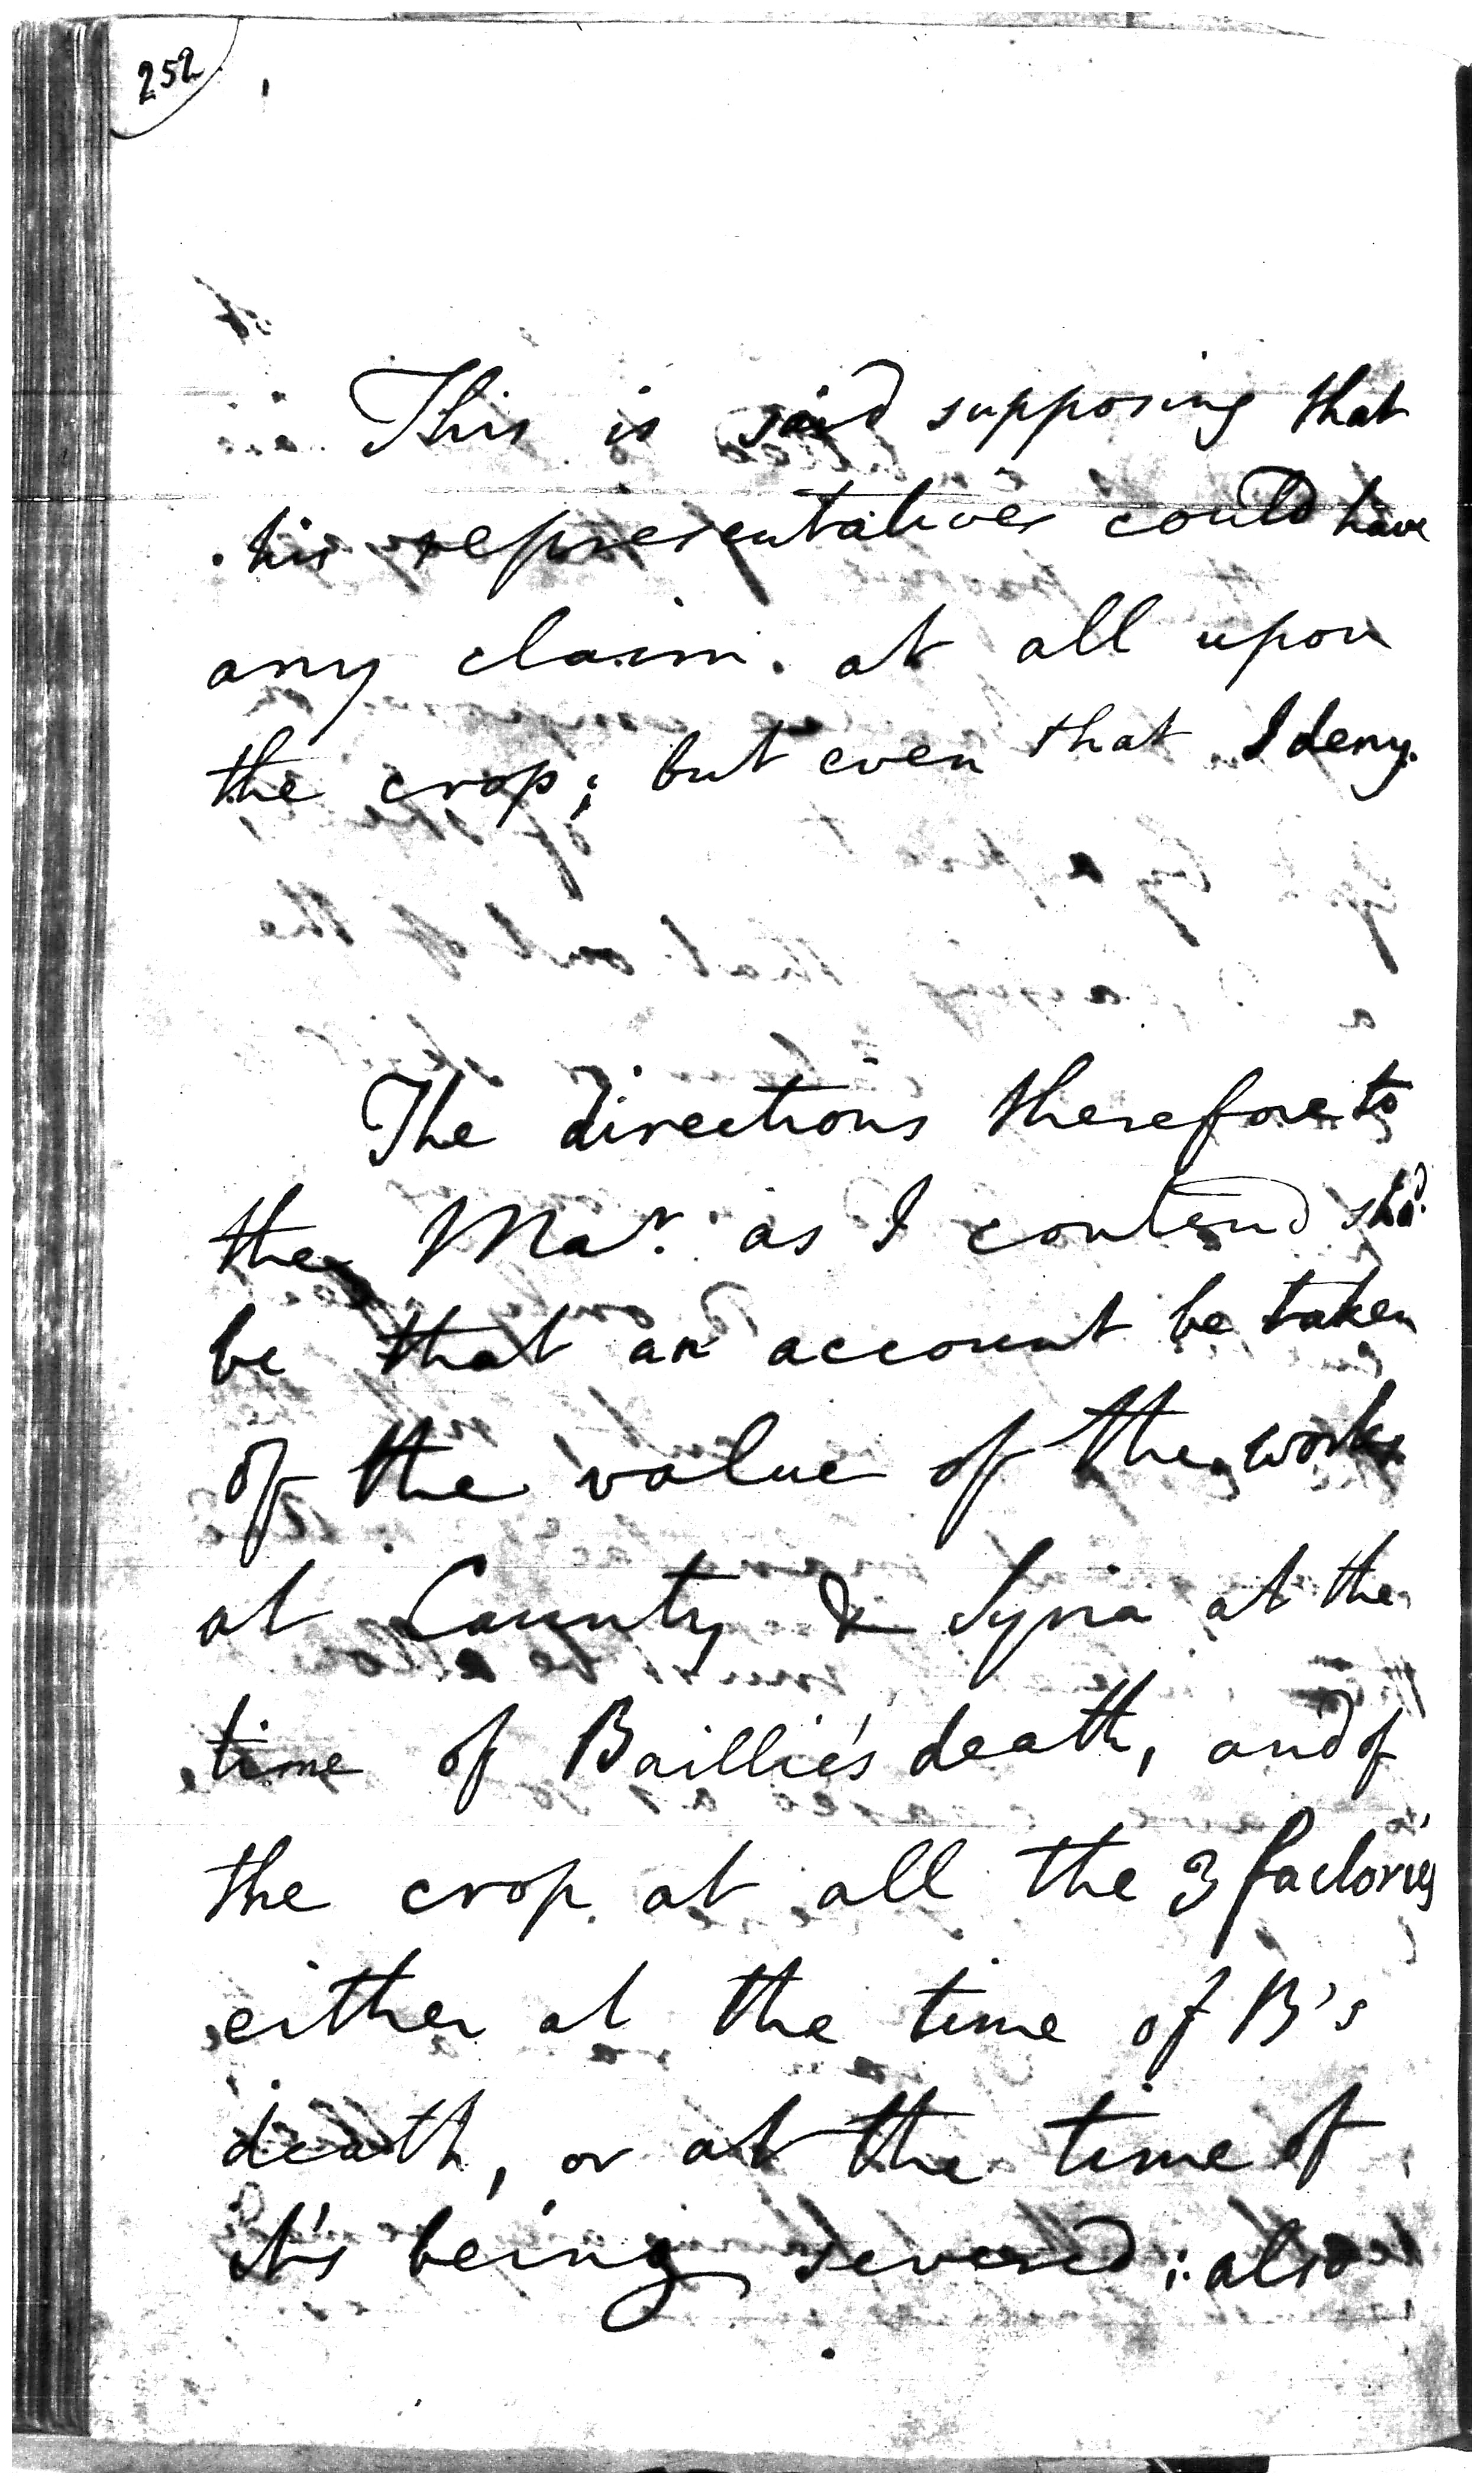 252
This is said supposing that
his representatives could have
any claim at all upon
the crop; but even that I deny.
The directions therefore to
the Mar. as I contend shd.
be that an account be taken
of the value of the works
at County & Syria at the
time of Baillie's death, and of
the crop at all the 3 factories
either at the time of B's
death, or at the time of
it's being severed; also